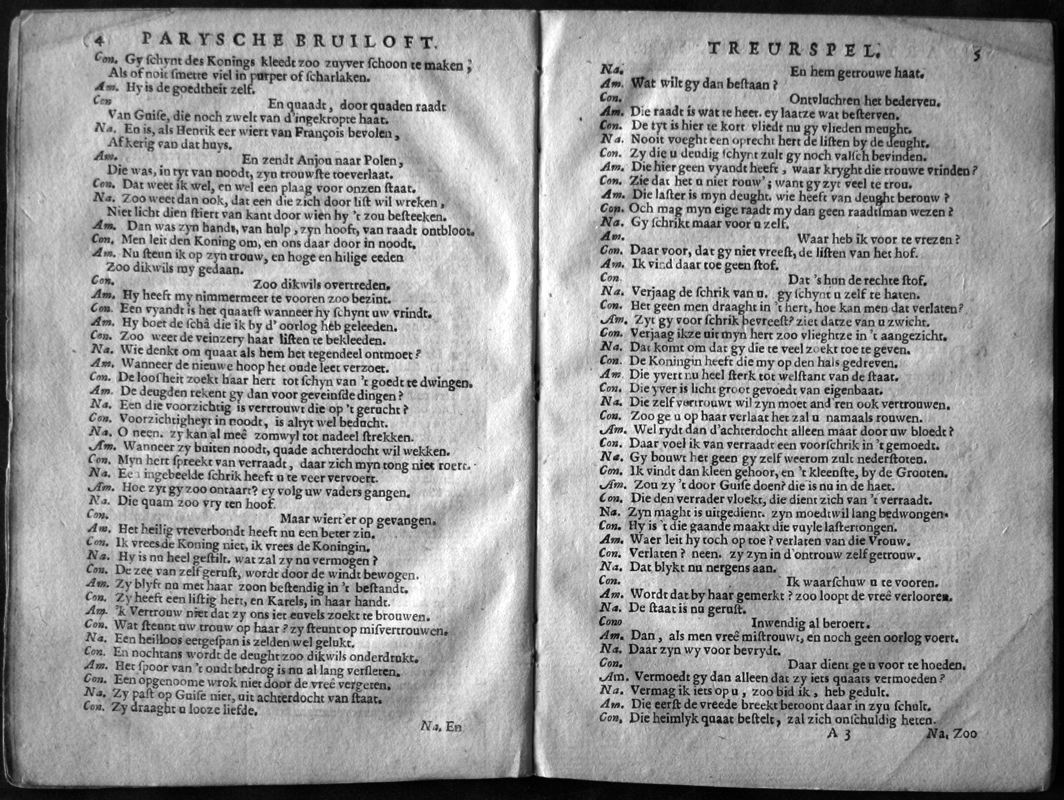 4 PARYSCHE BRUILOFT.
Con. Gy ſchynt des Konings kleedt zoo zuyver ſchoon te maken;
Als of noit ſmette viel in purper of ſcharlaken.
Am. Hy is de goedtheit zelf.
Con En quaadt, door quaden raadt
Van Guiſe, die noch zwelt van d'ingekropte haat.
Na. En is, als Henrik eer wiert van François bevolen,
Afkerig van dat huys.
Am. En zendt Anjou naar Polen,
Die was, in tyt van noodt, zyn trouwſte toeverlaat.
Con. Dat weet ik wel, en wel een plaag voor onzen ſtaat.
Na. Zoo weet dan ook, dat een die zich door liſt wil wreken,
Niet licht dien ſtiert van kant door wien hy 't zou beſteeken.
Am. Dan was zyn handt, van hulp, zyn hooft, van raadt ontbloot.
Con. Men leit den Koning om, en ons daar door in noodt.
Am. Nu ſteun ik op zyn trouw, en hoge en hilige eeden
Zoo dikwils my gedaan.
Con. Zoo dikwils overtreden.
Am. Hy heeft my nimmermeer te vooren zoo bezint.
Con. Een vyandt is het quaatſt wanneer hy ſchynt uw vrindt.
Am. Hy boet de ſchâ die ik by d' oorlog heb geleeden.
Con. Zoo weet de veinzery haar liſten te bekleeden.
Na. Wie denkt om quaat als hem het tegendeel ontmoet?
Am. Wanneer de nieuwe hoop het oude leet verzoet.
Con. De loosheit zoekt haar hert tot ſchyn van 't goedt te dwingen.
Am. De deugden rekent gy dan voor geveinſde dingen?
Na. Een die voorzichtig is vertrouwt die op 't gerucht?
Con. Voorzichtigheyt in noodt, is altyt wel beducht.
Na. O neen. zy kan al meê zomwyl tot nadeel ſtrekken.
Am. Wanneer zy buiten noodt, quade achterdocht wil wekken.
Con. Myn hert ſpreekt van verraadt, daar zich myn tong niet roert.
Na. Een ingebeelde ſchrik heeft u te veer vervoert.
Am. Hoe zyt gy zoo ontaart? ey volg uw vaders gangen.
Na. Die quam zoo vry ten hoof.
Con. Maar wiert'er op gevangen.
Am. Het heilig vreverbondt heeft nu een beter zin.
Con. Ik vrees de Koning niet, ik vrees de Koningin.
Na. Hy is nu heel geſtilt. wat zal zy nu vermogen?
Con. De zee van zelf geruſt, wordt door de windt bewogen.
Am. Zy blyft nu met haar zoon beſtendig in 't beſtandt.
Con. Zy heeft een liſtig hert, en Karels, in haar handt.
Am. 'k Vertrouw niet dat zy ons iet euvels zoekt te brouwen.
Con. Wat ſteunt uw trouw op haar? zy ſteunt op miſvertrouwen.
Na. Een heilloos eetgeſpan is zelden wel gelukt.
Con. En nochtans wordt de deught zoo dikwils onderdrukt.
Am. Het ſpoor van 't oudt bedrog is nu al lang verſleten.
Con. Een opgenoome wrok niet door de vreê vergeten.
Na. Zy paſt op Guiſe niet, uit achterdocht van ſtaat.
Con. Zy draaght u looze liefde.
Na. En
TREURSPEL. 5
Na. En hem getrouwe haat.
Am. Wat wilt gy dan beſtaan?
Con. Ontvluchten het bederven.
Am. Die raadt is wat te heet. ey laatze wat beſterven.
Con. De tyt is hier te kort vliedt nu gy vlieden meught.
Na. Nooit voeght een oprecht hert de liſten by de deught.
Con. Zy die u deudig ſchynt zult gy noch valſch bevinden.
Am. Die hier geen vyandt heeft, waar kryght die trouwe vrinden?
Con. Zie dat het u niet rouw'; want gy zyt veel te trou.
Am. Die laſter is myn deught. wie heeft van deught berouw?
Con. Och mag myn eige raadt my dan geen raadtſman wezen?
Na. Gy ſchrikt maar voor u zelf.
Am. Waar heb ik voor te vrezen?
Con. Daar voor, dat gy niet vreeſt, de liſten van het hof.
Am. Ik vind daar toe geen ſtof.
Con. Dat 's hun de rechte ſtof.
Na. Verjaag de ſchrik van u. gy ſchynt u zelf te haten.
Con. Het geen men draaght in 't hert, hoe kan men dat verlaten?
Am. Zyt gy voor ſchrik bevreeſt? ziet datze van u zwicht.
Con. Verjaag ikze uit myn hert zoo vlieghtze in 't aangezicht.
Na. Dat komt om dat gy die te veel zoekt toe te geven.
Con. De Koningin heeft die my op den hals gedreven.
Am. Die yvert nu heel ſterk tot welſtant van de ſtaat.
Con. Die yver is licht groot gevoedt van eigenbaat.
Na. Die zelf vertrouwt wil zyn moet and'ren ook vertrouwen.
Con. Zoo ge u op haar verlaat het zal u namaals rouwen.
Am. Wel rydt dan d'achterdocht alleen maat door uw bloedt?
Con. Daar voel ik van verraadt een voorſchrik in 't gemoedt.
Na. Gy bouwt het geen gy zelf weerom zult nederſtoten.
Con. Ik vindt dan kleen gehoor, en 't kleenſte, by de Grooten.
Am. Zou zy 't door Guiſe doen? die is nu in de haet.
Con. Die den verrader vloekt, die dient zich van 't verraadt.
Na. Zyn maght is uitgedient. zyn moedtwil lang bedwongen.
Con. Hy is 't die gaande maakt die vuyle laſtertongen.
Am. Waer leit hy toch op toe? verlaten van die Vrouw.
Con. Verlaten? neen. zy zyn in d'ontrouw zelf getrouw.
Na. Dat blykt nu nergens aan.
Con. Ik waarſchuw u te vooren.
Am. Wordt dat by haar gemerkt? zoo loopt de vreê verlooren.
Na. De ſtaat is nu geruſt.
Cono Inwendig al beroert.
Am. Dan, als men vreê miſtrouwt, en noch geen oorlog voert.
Na. Daar zyn wy voor bevrydt.
Con. Daar dient ge u voor te hoeden.
Am. Vermoedt gy dan alleen dat zy iets quaats vermoeden?
Na. Vermag ik iets op u, zoo bid ik, heb gedult.
Am. Die eerſt de vreede breekt betoont daar in zyn ſchult.
Con. Die heimlyk quaat beſtelt, zal zich onſchuldig heten.
A 3 Na. Zoo